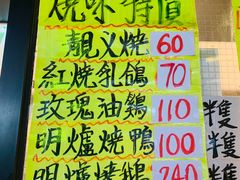 燒味特價
靚义燒 60
紅燒乳鴿 70
玫瑰油鷄 110
明爐燒鴨 100
明爐燒鵝 240
隻
隻